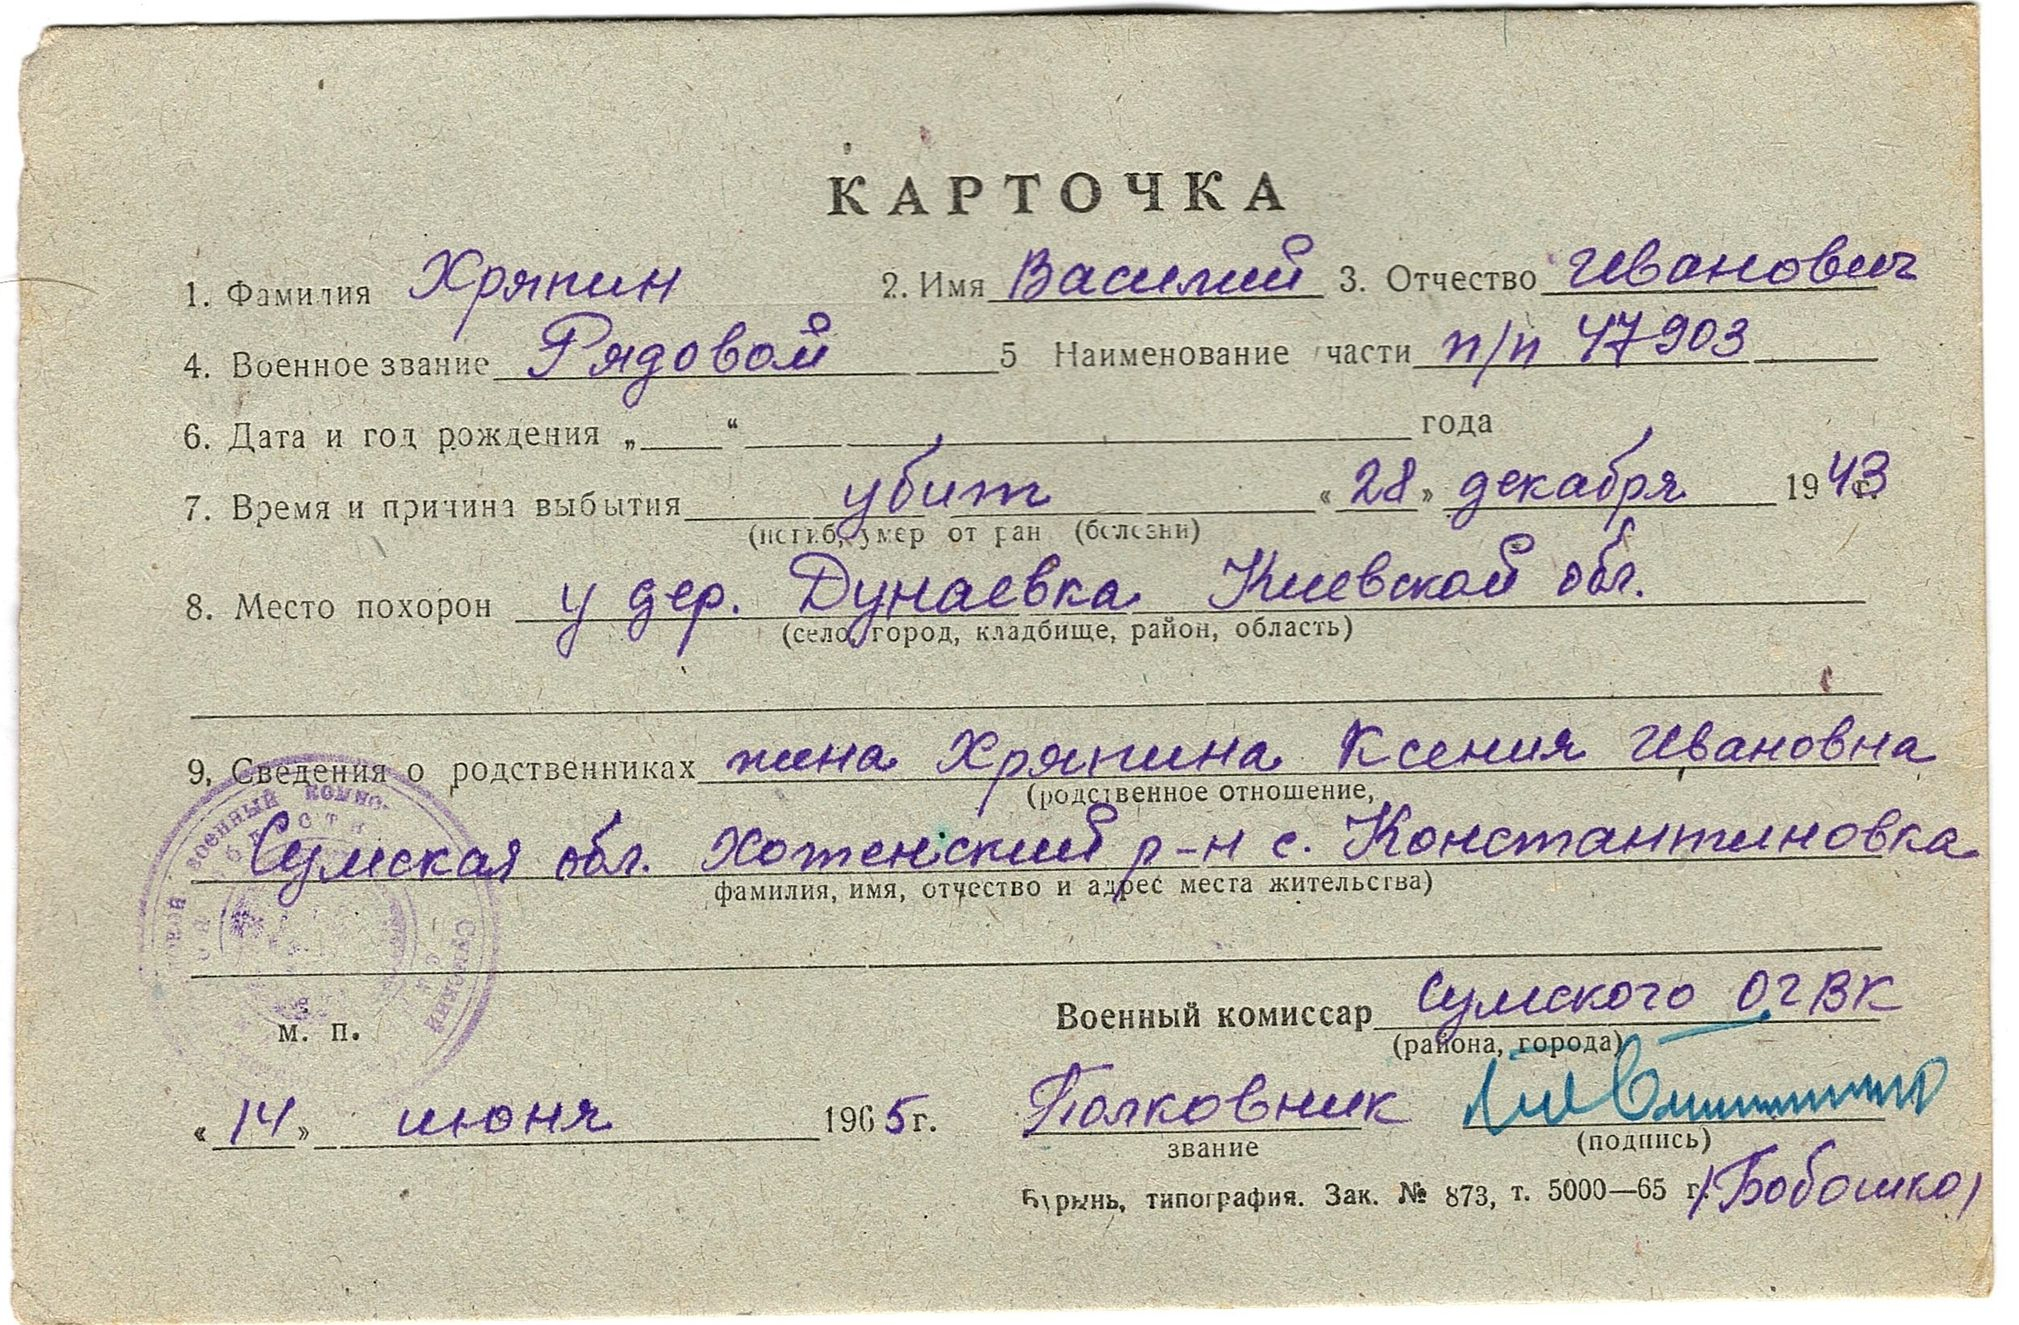 КАРТОЧКА
1. Фамилия Хряпин 2. Имя Василий 3. Отчество Иванович
4. Военное звание Рядовой 5 Наименование части п/п 47903
6. Дата и год рождения „ “ года
7. Время и причина выбытия убит «28» декабря 1943 г.
(погиб, умер от ран (болезни)
8. Место похорон у дер. Дунаевка Киевской обл.
(село, город, кладбище, район, область)
9. Сведения о родственниках жена Хряпина Ксения Ивановна
(родственное отношение,
Сумская обл. Хотенский р-н с. Константиновка
фамилия, имя, отчество и адрес места жительства)
военный комис
Сумский
Военный комиссар Сумского ОГВК
(района, города)
м. п.
«14» июня 1965г. Полковник
звание (подпись)
Бурынь, типография. Зак. № 873, т. 5000—65 г. (Бобошко)